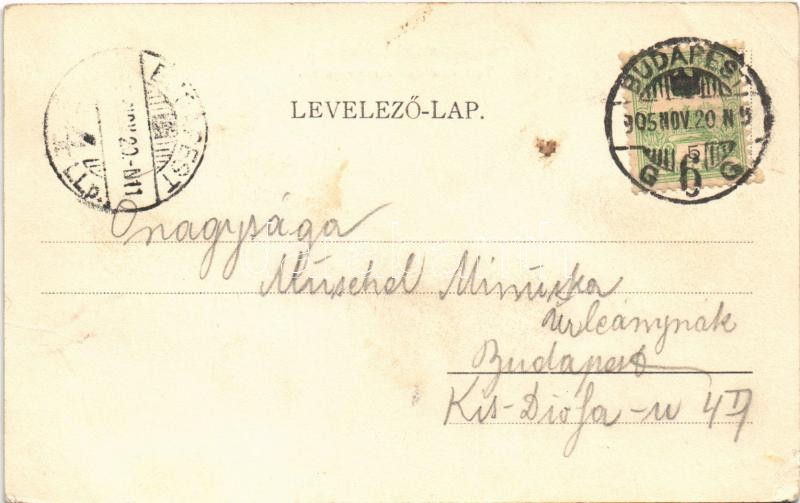 LEVELEZŐ-LAP.
BUDAPEST
905 NOV. 20 N 5
5
G 6 G
BUDAPEST
NOV. 20-N11
I.I.P.
Önagysága
Müschel Minuska
Úrleánynak
Budapest
Kis-Diófa-u 4 II